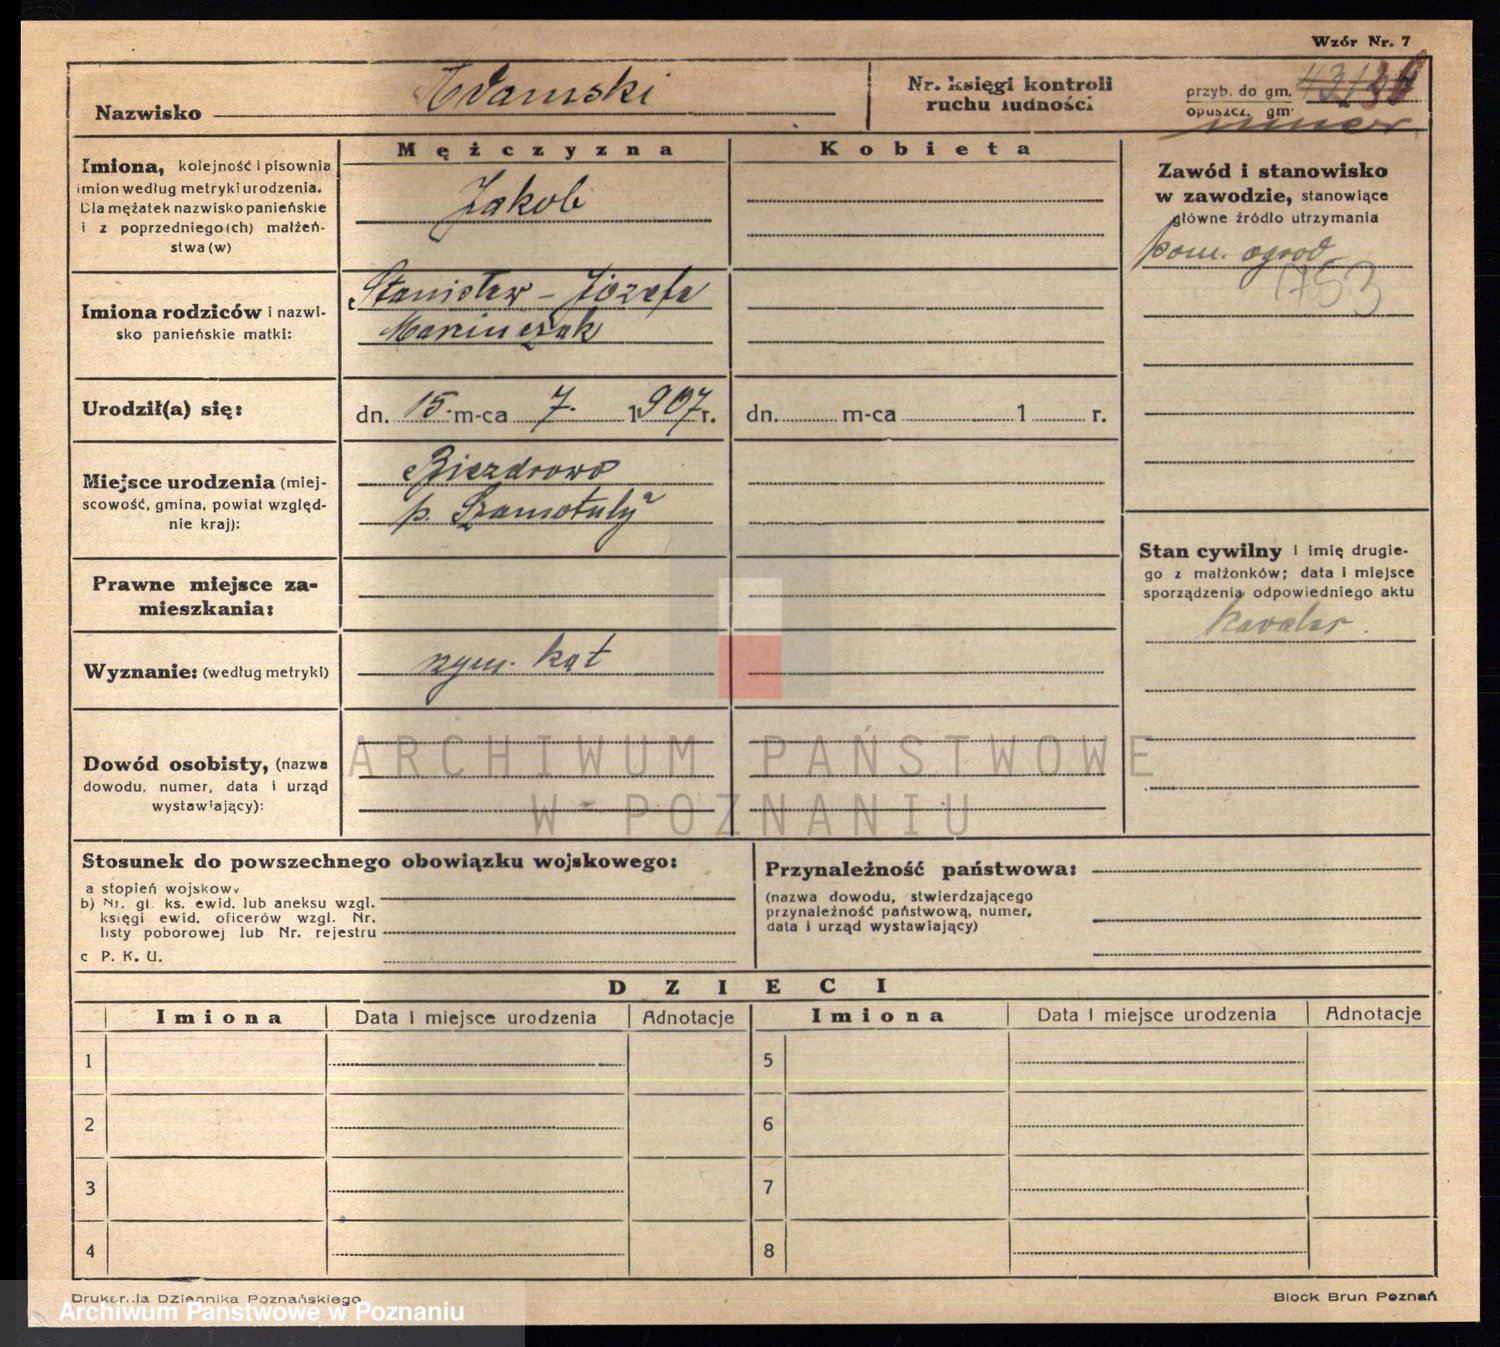 Wzór Nr. 7
Nazwisko Adamski
Nr. księgi kontroli
ruchu ludności
przyb. do gm.
opuszcz. gm.
Mężczyzna
Kobieta
Imiona, kolejność i pisownia
imion według metryki urodzenia.
Dla mężatek nazwisko panieńskie
i z poprzedniego(ch) małżeń-
stwa(w)
Jakob
Imiona rodziców i nazwi-
sko panieńskie matki:
Stanisław - Józefa
Marciniak
Urodził(a) się:
dn. 15. m-ca 7. 1907 r.
dn. m-ca 1 r.
Miejsce urodzenia (miej-
scowość, gmina, powiat względ-
nie kraj):
Biezdrowo
p. Szamotuły
Prawne miejsce za-
mieszkania:
Wyznanie: (według metryki)
rzym. kat
Dowód osobisty, (nazwa
dowodu, numer, data i urząd
wystawiający):
Zawód i stanowisko
w zawodzie, stanowiące
główne źródło utrzymania
pom. ogrod
1753
Stan cywilny i imię drugie-
go z małżonków; data i miejsce
sporządzenia odpowiedniego aktu
kawaler.
ARCHIWUM PAŃSTWOWE
W POZNANIU
Stosunek do powszechnego obowiązku wojskowego:
a stopień wojskowy
b) Nr. gł. ks. ewid. lub aneksu wzgl.
księgi ewid. oficerów wzgl. Nr.
listy poborowej lub Nr. rejestru
c P. K. U.
Przynależność państwowa:
(nazwa dowodu, stwierdzającego
przynależność państwową, numer,
data i urząd wystawiający)
DZIECI
Imiona Data i miejsce urodzenia Adnotacje Imiona Data i miejsce urodzenia Adnotacje
1 5
2 6
3 7
4 8
Drukarnia Dziennika Poznańskiego
Block Brun Poznań
Archiwum Państwowe w Poznaniu